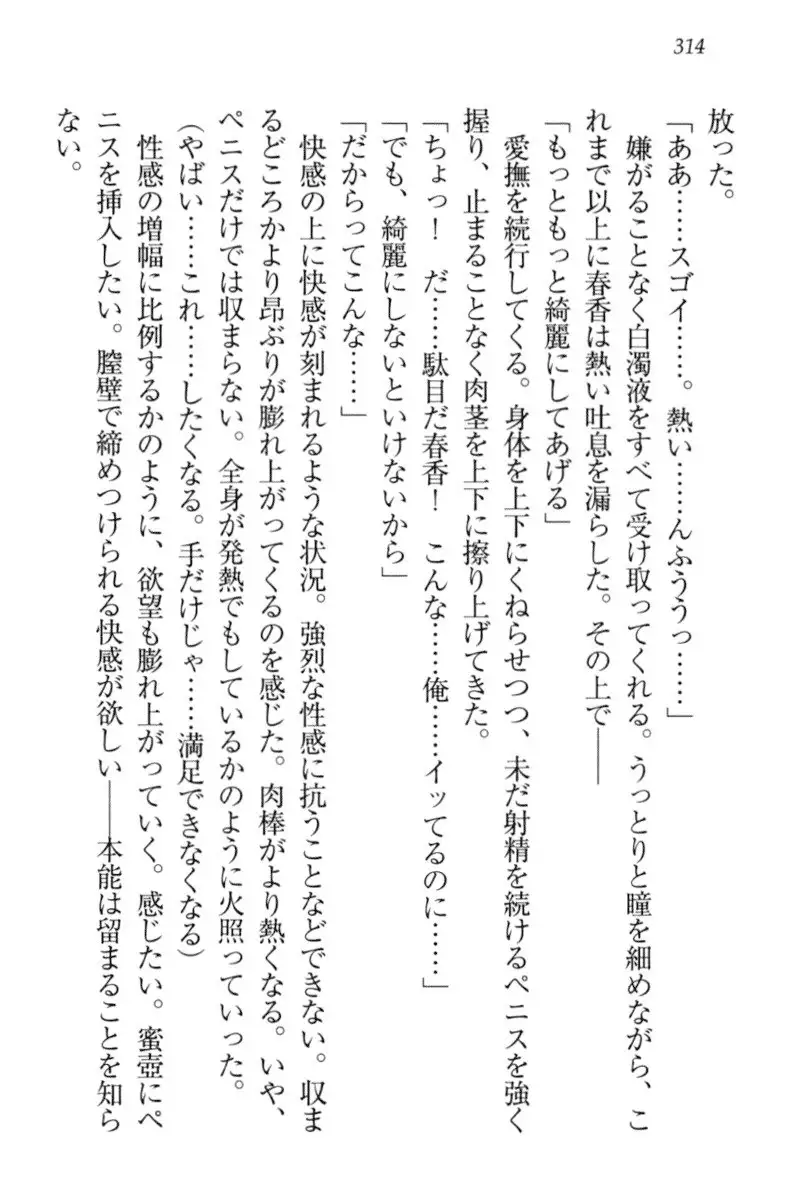 314
放った。
「ああ……スゴイ……。熱い……んふううっ……」
嫌がることなく白濁液をすべて受け取ってくれる。うっとりと瞳を細めながら、こ
れまで以上に春香は熱い吐息を漏らした。その上で――
「もっともっと綺麗にしてあげる」
愛撫を続行してくる。身体を上下にくねらせつつ、未だ射精を続けるペニスを強く
握り、止まることなく肉茎を上下に擦り上げてきた。
「ちょっ！　だ……駄目だ春香！　こんな……俺……イッてるのに……」
「でも、綺麗にしないといけないから」
「だからってこんな……」
快感の上に快感が刻まれるような状況。強烈な性感に抗うことなどできない。収ま
るどころかより昂ぶりが膨れ上がってくるのを感じた。肉棒がより熱くなる。いや、
ペニスだけでは収まらない。全身が発熱でもしているかのように火照っていった。
（やばい……これ……したくなる。手だけじゃ……満足できなくなる）
性感の増幅に比例するかのように、欲望も膨れ上がっていく。感じたい。蜜壺にペ
ニスを挿入したい。膣壁で締めつけられる快感が欲しい――本能は留まることを知ら
ない。